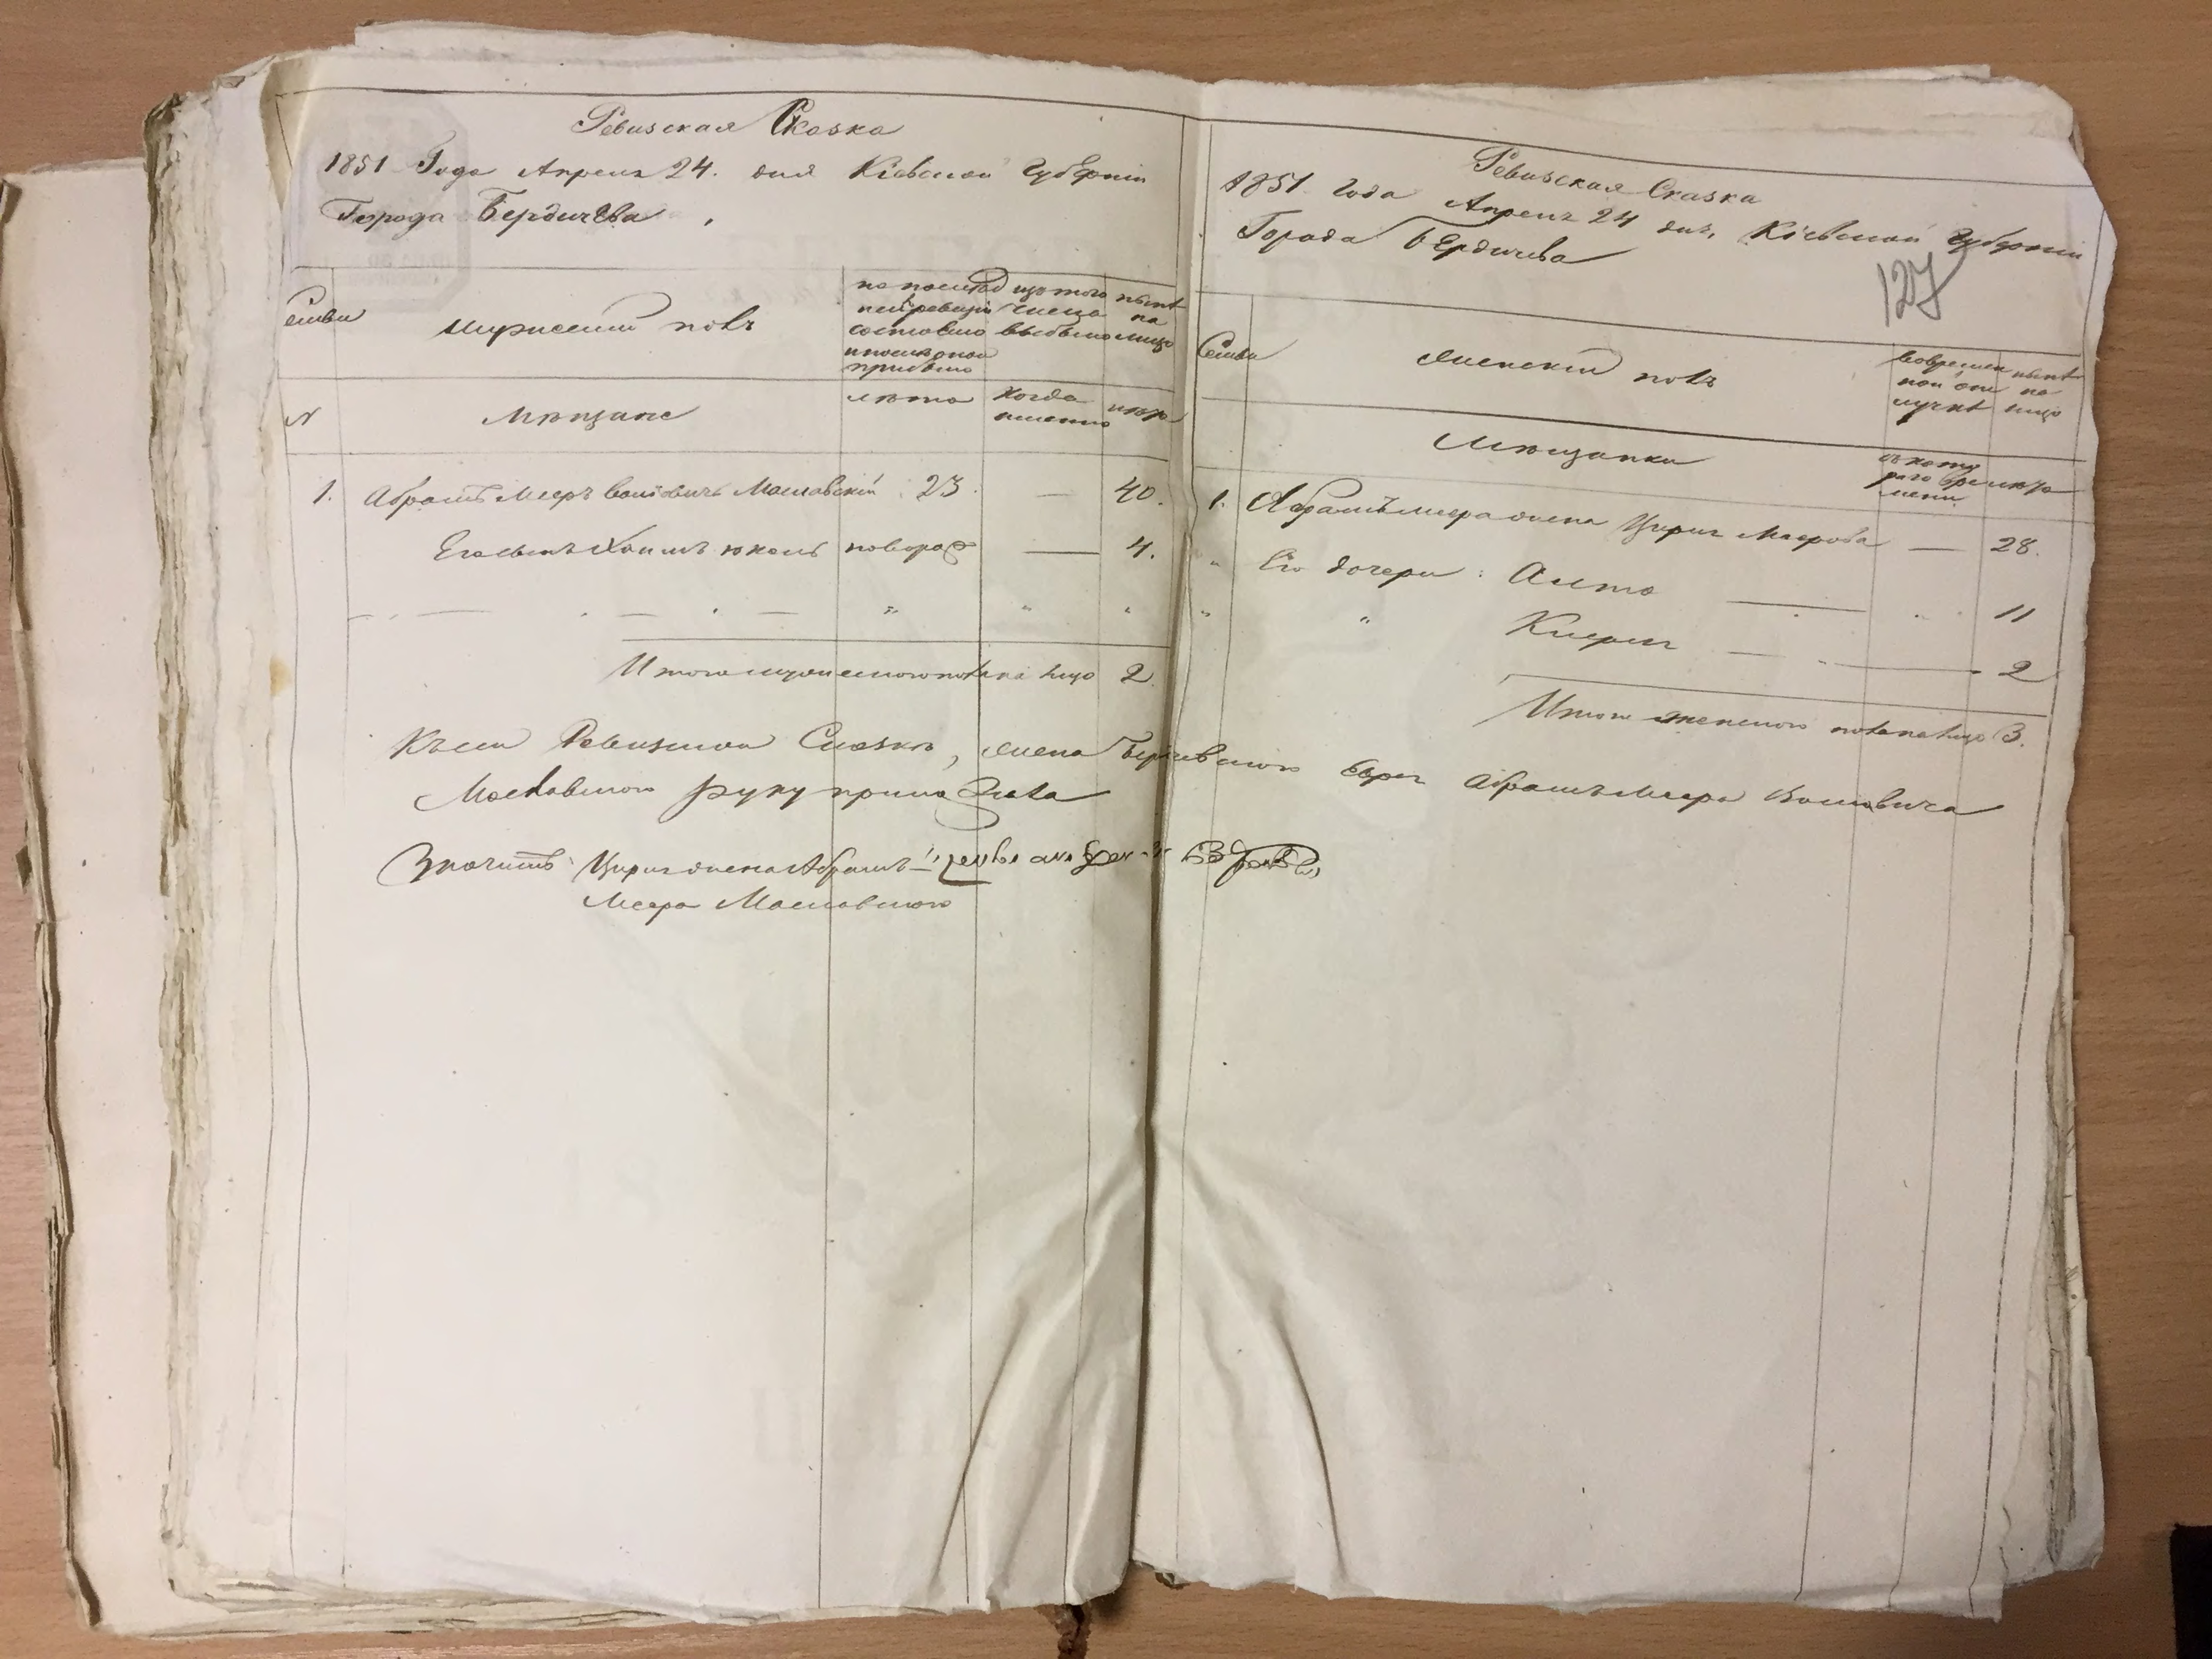 Ревизская Сказка
1851 Года Апреля 24. дня Кіевской Губерніи
Города Бердичева
Семьи
мужеский полъ
по последней ревизіи состояло и после оной прибыло
изъ того числа выбыло
ныне на лицо
N
Мещане
лета
когда именно
лета
1. Абрамъ Мееръ Волковичъ Маславскій 23. — 40.
Его сынъ Хаимъ Юкель новорож — 4.
Итого мужеского пола на лицо 2.
Ревизская Сказка
1851 Года Апреля 24 дня, Кіевской Губерніи
Города Бердичева
127
Семьи
женский полъ
во временной отлучке
ныне на лицо
Мещанки
съ которого времени
лета
1. Абрамъ Меера жена Цирля Маерова — 28.
" Его дочери: Аита — " 11
" " — 2
Итого женского пола на лицо 3.
Къ сей Ревизской Сказке, жена Бердичевского Еврея Абрамъ Меера Волковича
Маславского руку приложила
Значитъ: Цирля жена Абрамъ
Меера Маславского